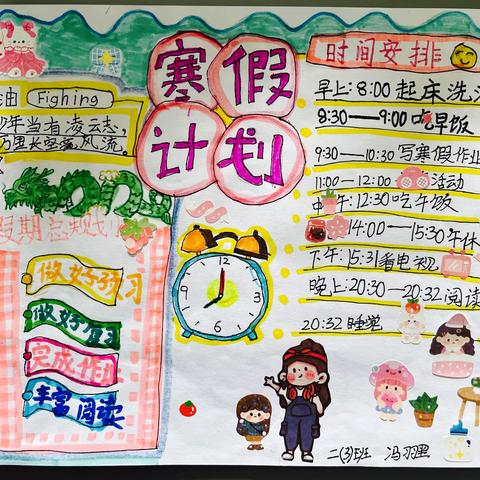 寒假
计划
油 Fighing
少年当有凌云志,
万里长空竞风流。
假期总规划
做好预习
做好复习
完成作业
丰富阅读
12
3
6
9
时间安排
早上:8:00 起床洗
8:30——9:00 吃早饭
9:30——10:30 写寒假作业
11:00——12:00 活动
中午:12:30 吃午饭
14:00——15:30 午休
下午:15:31 看电视
晚上:20:30——20:32 阅读
20:32 睡觉
二(3)班 冯羽墨